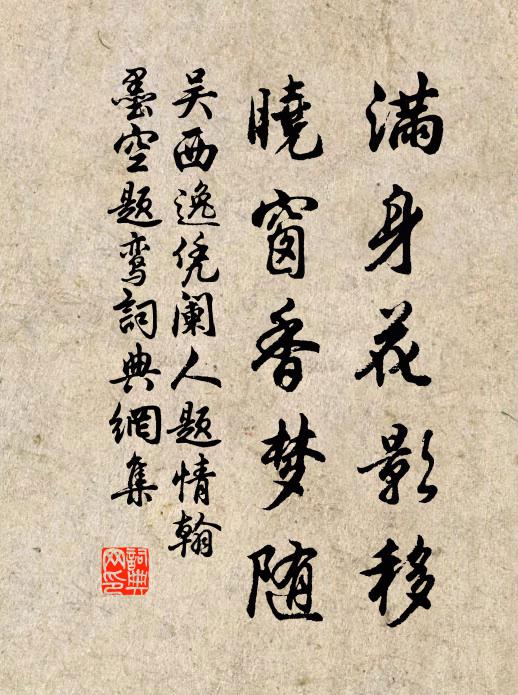 满身花影移
曉窗香梦随
吴西逸凭阑人题情翰
墨空题鸾詞典網集
詞典网印